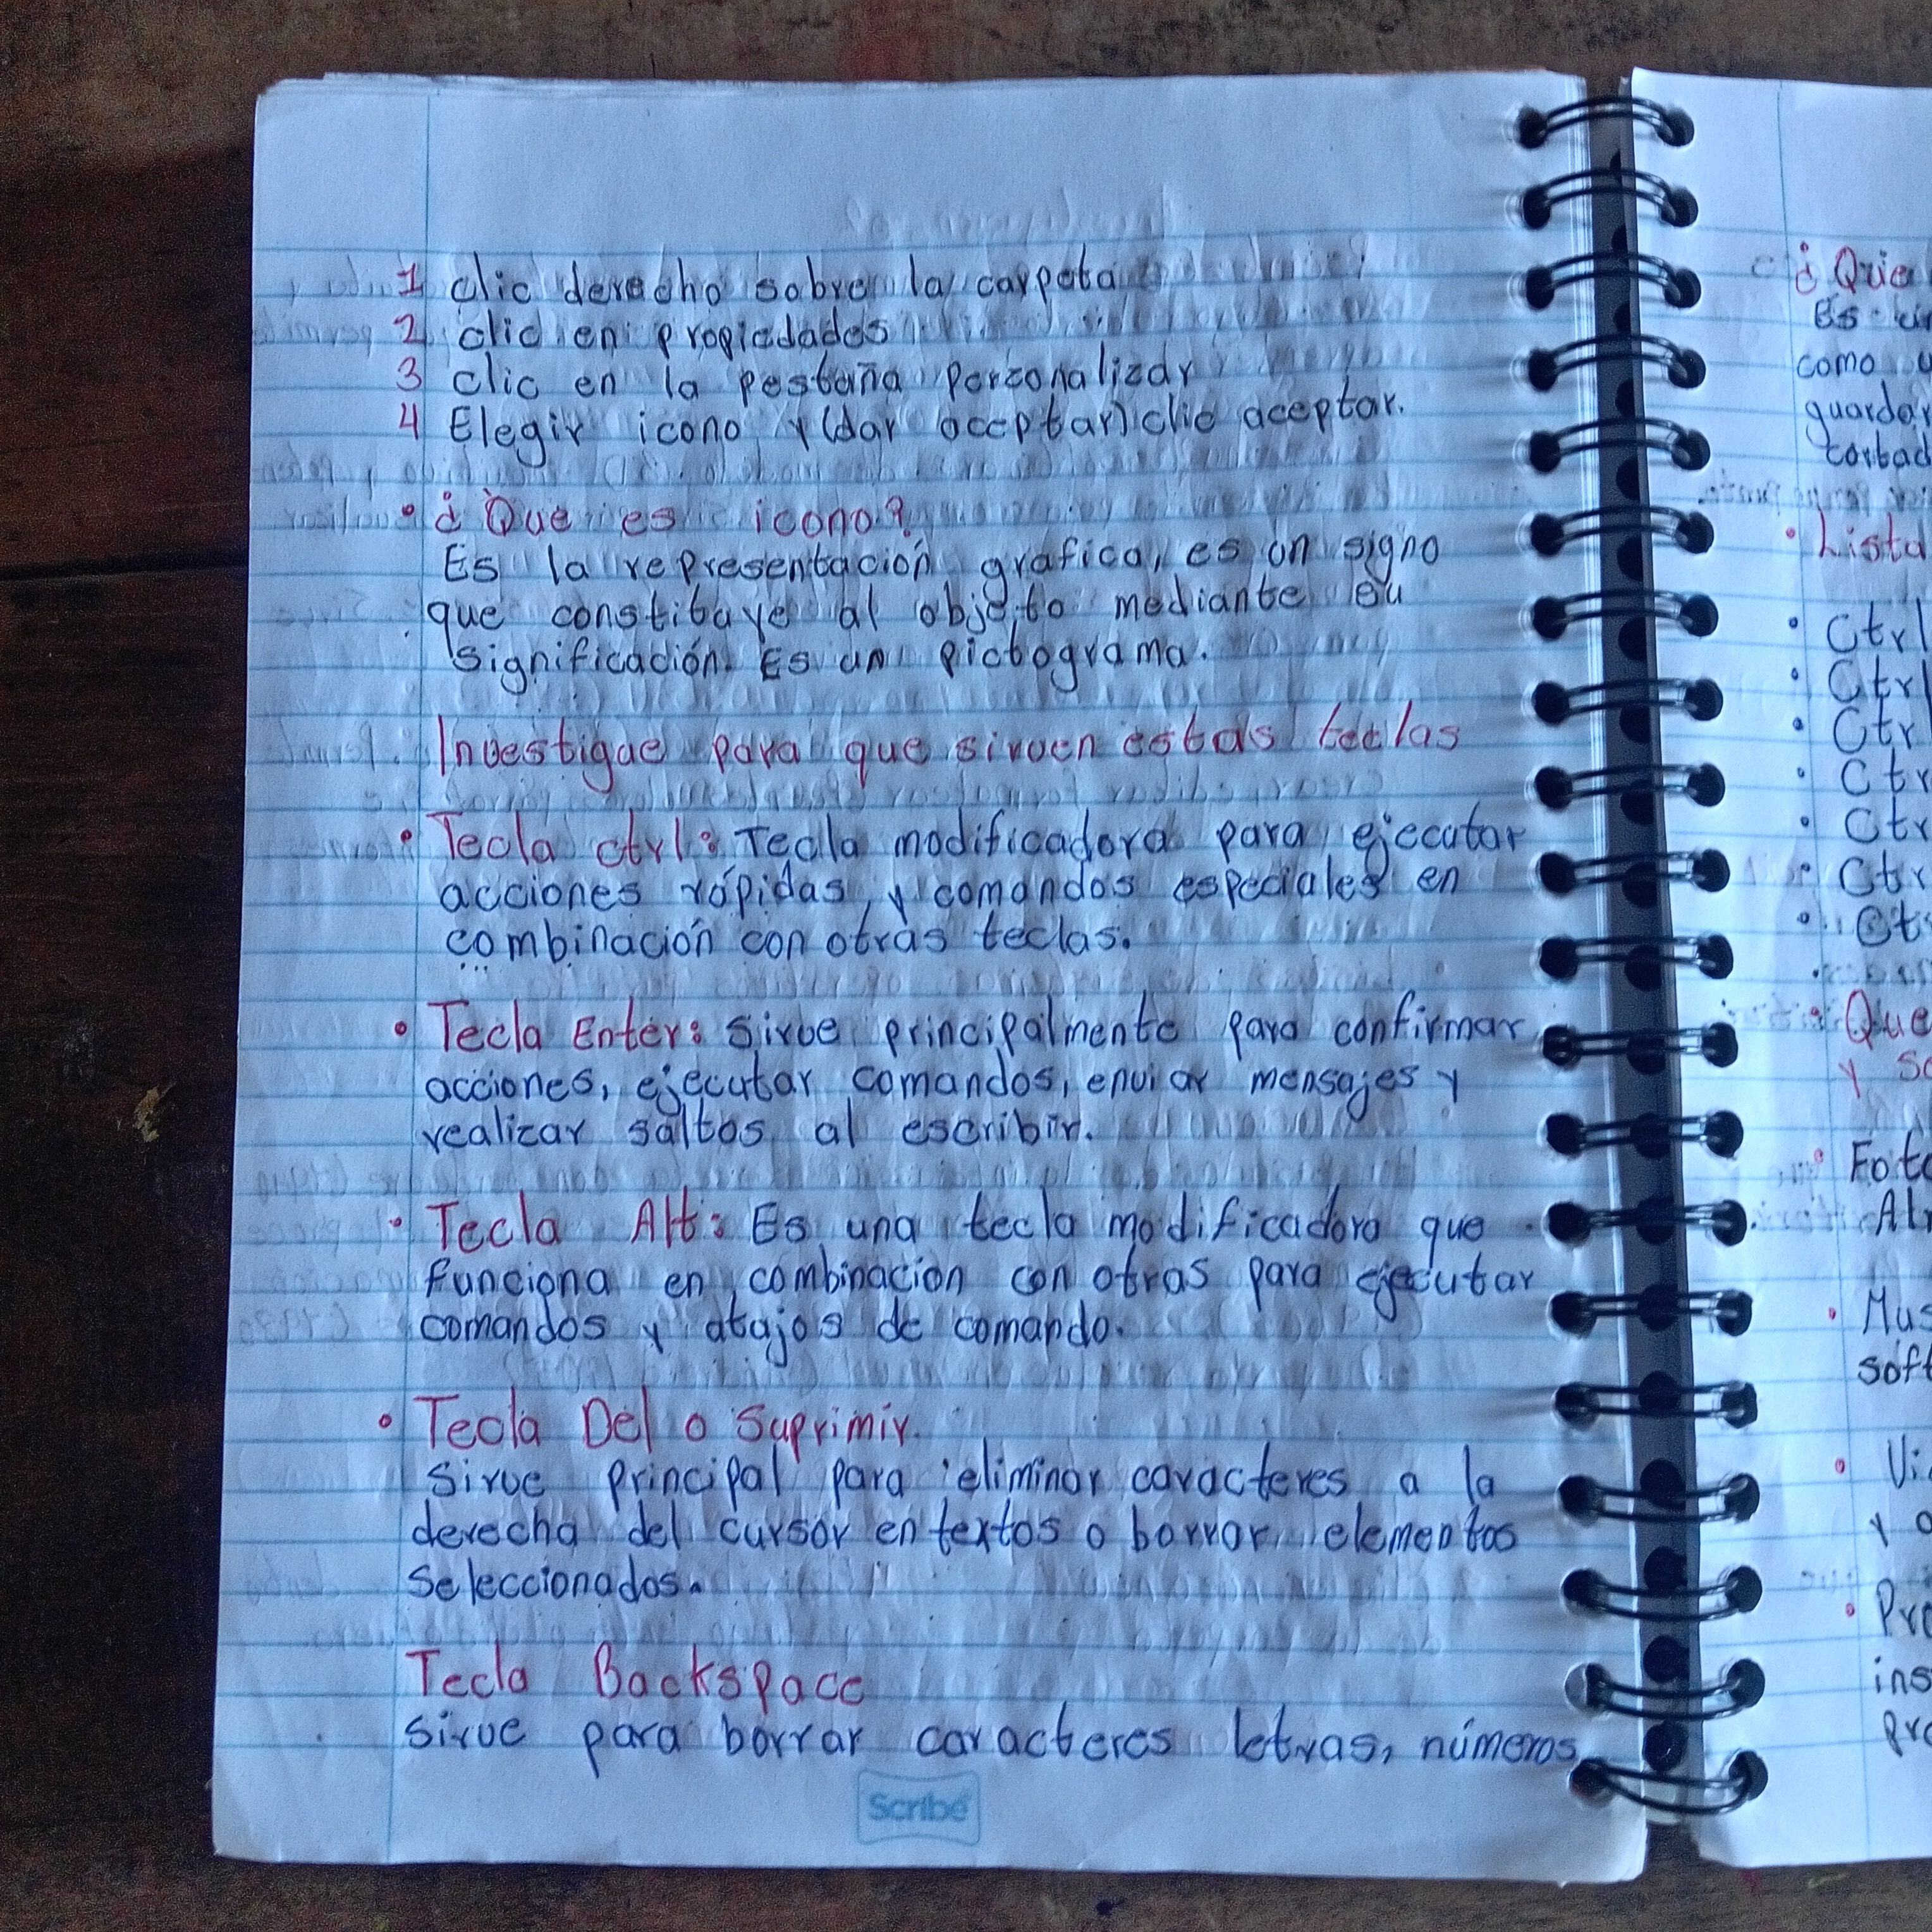 1 clic derecho sobre la carpeta
2 clic en propiedades
3 clic en la pestaña perzonalizar
4 Elegir icono y (dar aceptar) clic aceptar.
• ¿Que es icono?
Es la representación grafica, es un signo
que constituye al objeto mediante su
significación. Es un pictograma.
Investigue para que sirven estas teclas
• Tecla ctrl: Tecla modificadora para ejecutar
acciones rápidas, y comandos especiales en
combinación con otras teclas.
• Tecla Enter: Sirve principalmente para confirmar
acciones, ejecutar comandos, enviar mensajes y
realizar saltos al escribir.
• Tecla Alt: Es una tecla modificadora que
funciona en combinación con otras para ejecutar
comandos y atajos de comando.
• Tecla Del o Suprimir.
Sirve principal para eliminar caracteres a la
derecha del cursor en textos o borrar elementos
seleccionados.
Tecla Backspace
sirve para borrar caracteres letras, números
Scribe
¿Que
Es
como
guardar
• Lista
• Ctrl
• Ctrl
• Ctr
• Ctr
• Ctr
• Ctr
• Ct
• Que
y
• Fot
• Mus
soft
• Vi
y
• Pro
ins
pr